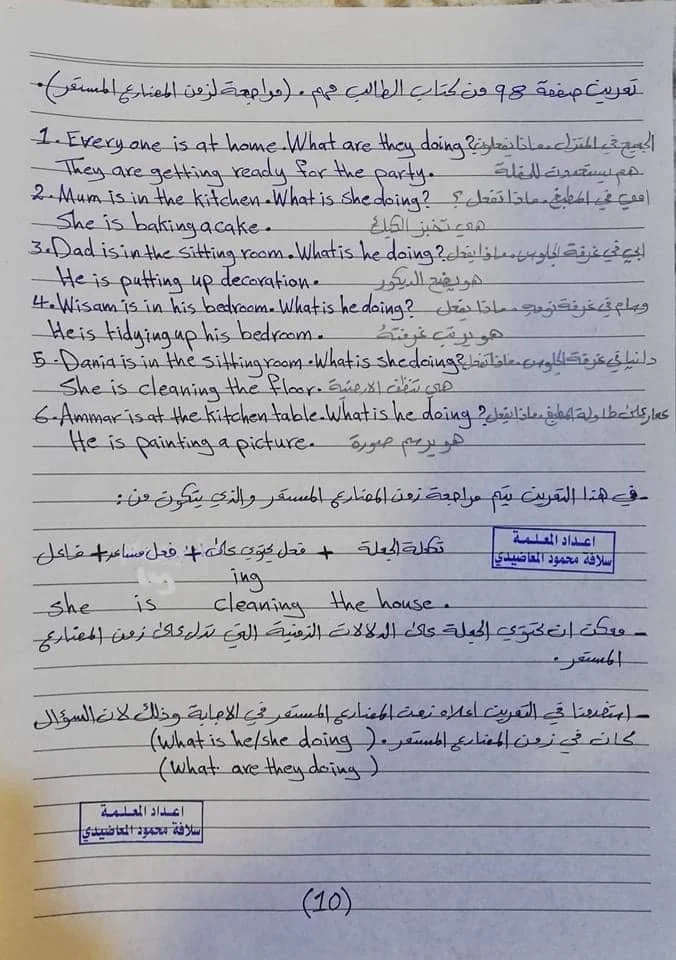 تمرين صفحة 98 من كتاب الطالب مهم. (مراجعة لزمن المضارع المستمر).
1. Every one is at home. What are they doing? الجميع في المنزل. ماذا يفعلون؟
They are getting ready for the party. هم يستعدون للحفلة
2. Mum is in the kitchen. What is she doing? امي في المطبخ. ماذا تفعل؟
She is baking a cake. هي تخبز الكيك
3. Dad is in the sitting room. What is he doing? ابي في غرفة الجلوس. ماذا يفعل
He is putting up decoration. هو يضع الديكور
4. Wisam is in his bedroom. What is he doing? وسام في غرفة نومه. ماذا يفعل
He is tidying up his bedroom. هو يرتب غرفته
5. Dania is in the sitting room. What is she doing? دانيا في غرفة الجلوس. ماذا تفعل
She is cleaning the floor. هي تنظف الارضية
6. Ammar is at the kitchen table. What is he doing? عمار على طاولة المطبخ. ماذا يفعل
He is painting a picture. هو يرسم صورة
- في هذا التمرين يتم مراجعة زمن المضارع المستمر والذي يتكون من:
اعداد المعلمة
سلافة محمود المعاضيدي
فاعل + فعل مساعد + فعل يحتوي على + تكملة الجملة
ing
she is cleaning the house.
- ممكن ان تحتوي الجملة على الدلالات الزمنية التي تدل على زمن المضارع
المستمر.
- استخدمنا في التمرين اعلاه زمن المضارع المستمر في الاجابة وذلك لان السؤال
كان في زمن المضارع المستمر. (What is he/she doing)
(What are they doing)
اعداد المعلمة
سلافة محمود المعاضيدي
(10)